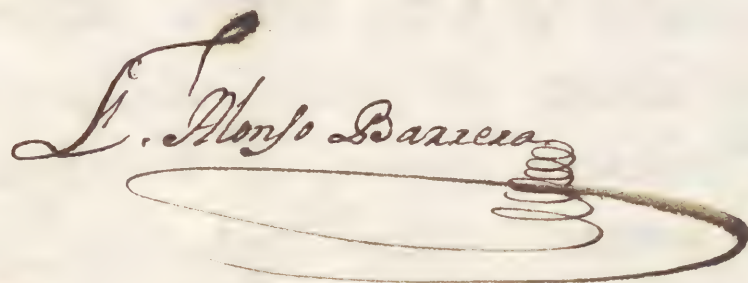 F. Alonso Barrera